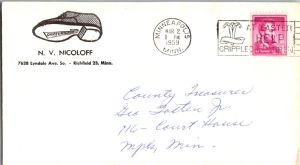 N. V. NICOLOFF
7628 Lyndale Ave. So. - Richfield 23, Minn.
MINNEAPOLIS
MAR 2
PM
1959
MINN.
AT EASTER
HELP
CRIPPLED
County Treasurer
Geo Totten Jr
716 - Court House
Mpls, Min.